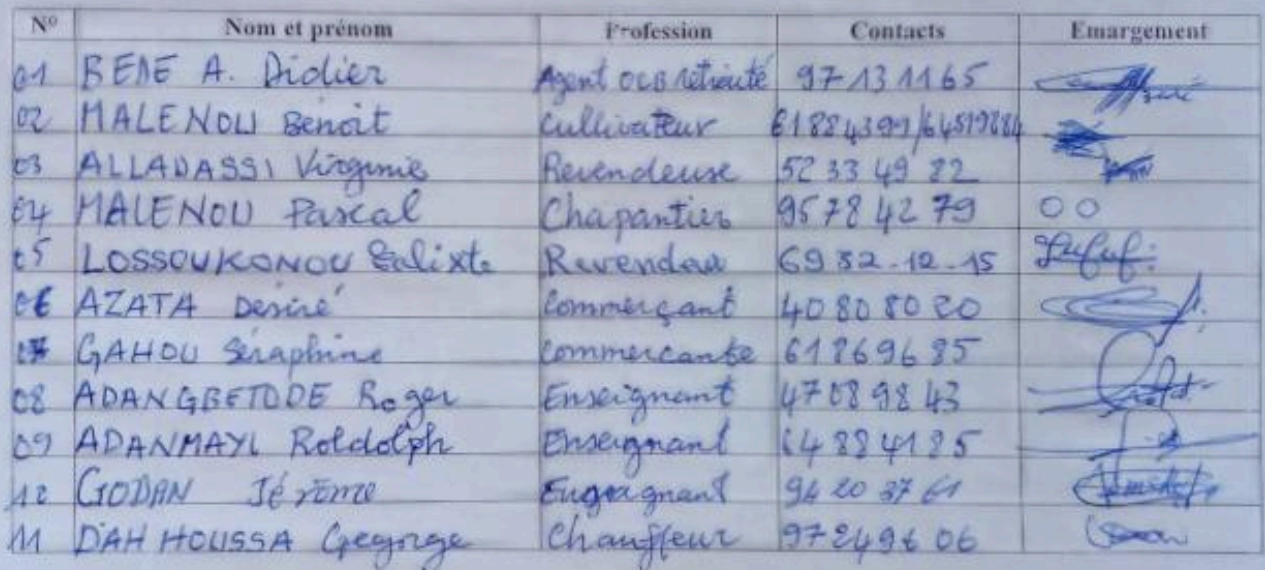 N° Nom et prénom Profession Contacts Emargement
01 BENE A. Didier Agent OCB retraité 97-13 11 65
02 MALENOU Benoît Cullivateur 61884399/64519884
03 ALLADASSI Virginie Revendeuse 52 33 49 22
04 MALENOU Pascal Chapantier 95 78 42 79
05 LOSSOUKONOU Calixte 69 82-12-15
06 AZATA Désiré Commerçant 40 80 80 20
07 GAHOU Séraphine Commercante 61869685
08 ADANGBETODE Roger Enseignant 47 08 98 43
09 ADANMAYI Roldolph Enseignant 64884185
12 GODAN Jérôme 94 20 37 61
11 DAH HOUSSA Gegorge Chauffeur 97249606